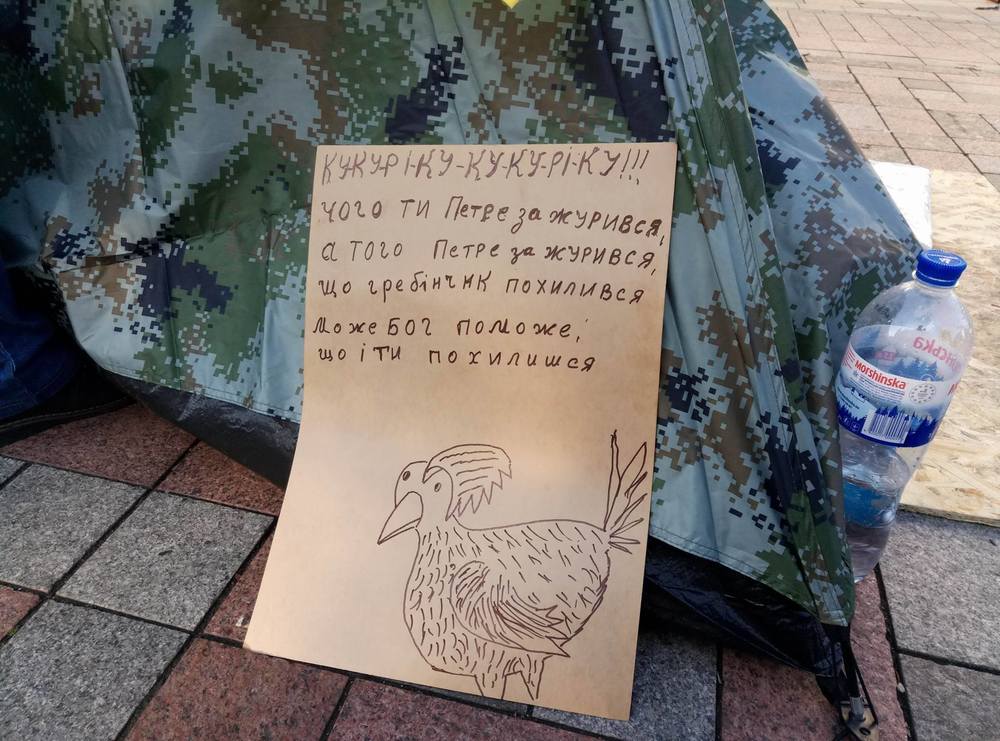 КУКУРІ-КУ-КУ-КУ-РІ-КУ!!!
ЧОГО ТИ Петре зажурився,
а того Петре зажурився,
що гребінчик похилився
може Бог поможе,
що і ти похилишся
morshinska
нська